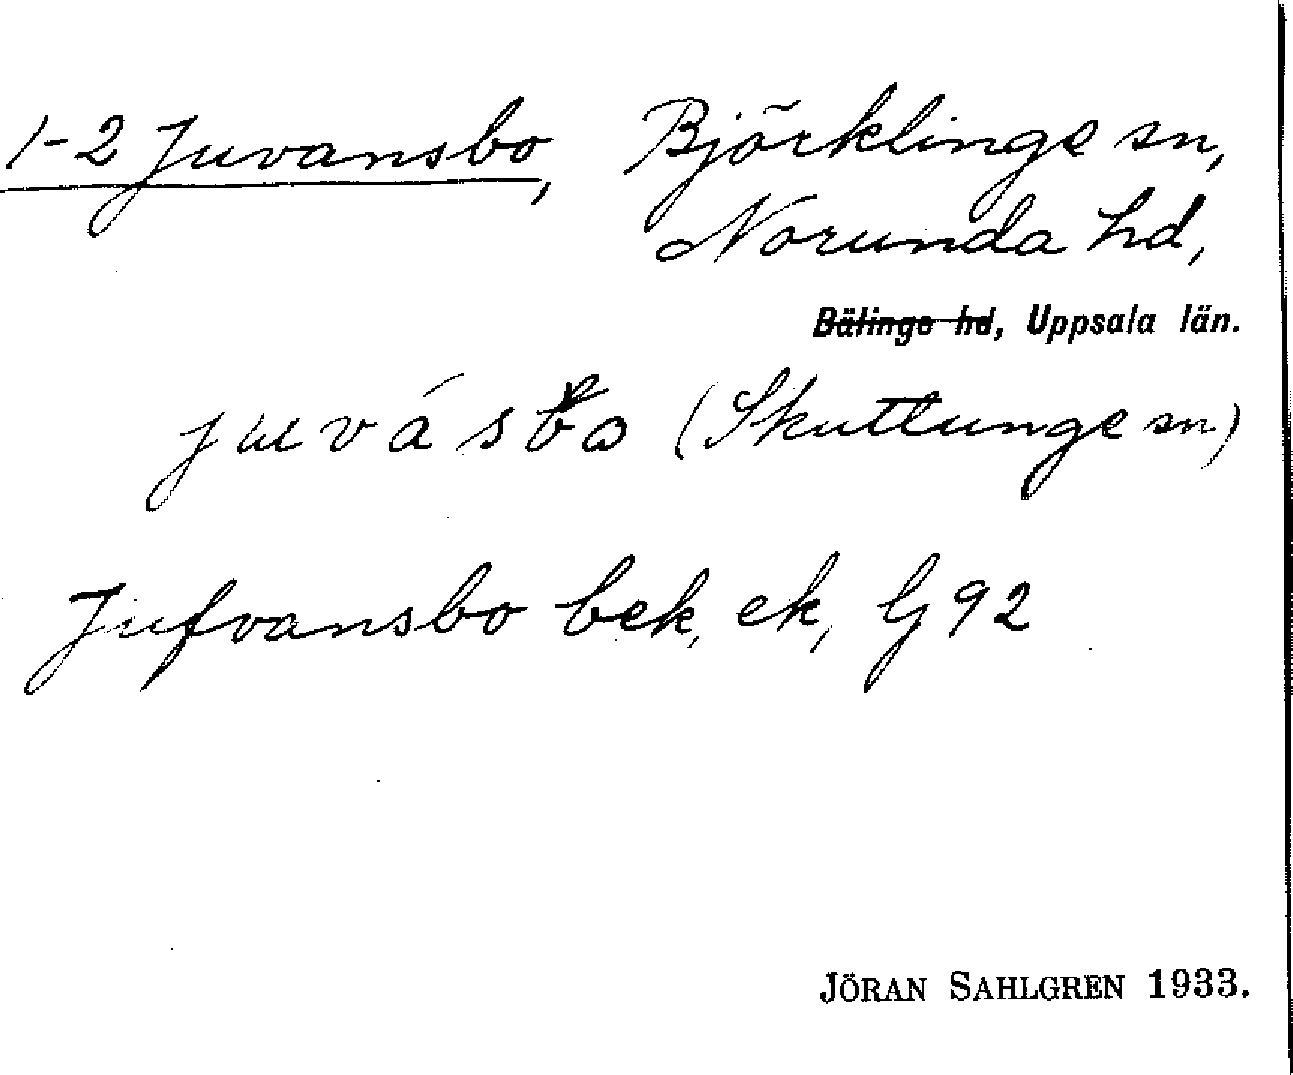 1-2 Juvansbo, Björklinge sn,
Norunda hd,
Bälinge hd, Uppsala län.
juvásbo (Skuttunge sn)
Jufvansbo bek, ek, G 92
JÖRAN SAHLGREN 1933.